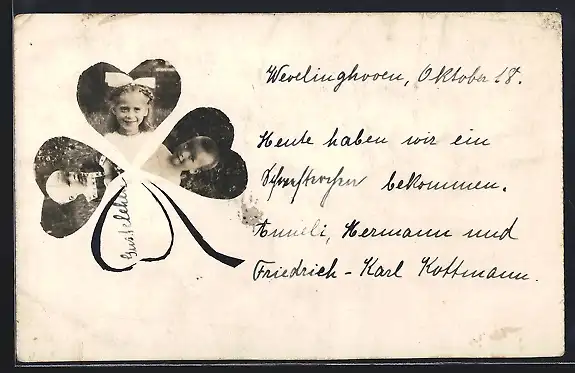 Wevelinghoven, Oktober 18.
Heute haben wir ein
Schwesterchen bekommen.
Anneli, Hermann und
Friedrich - Karl Kottmann.